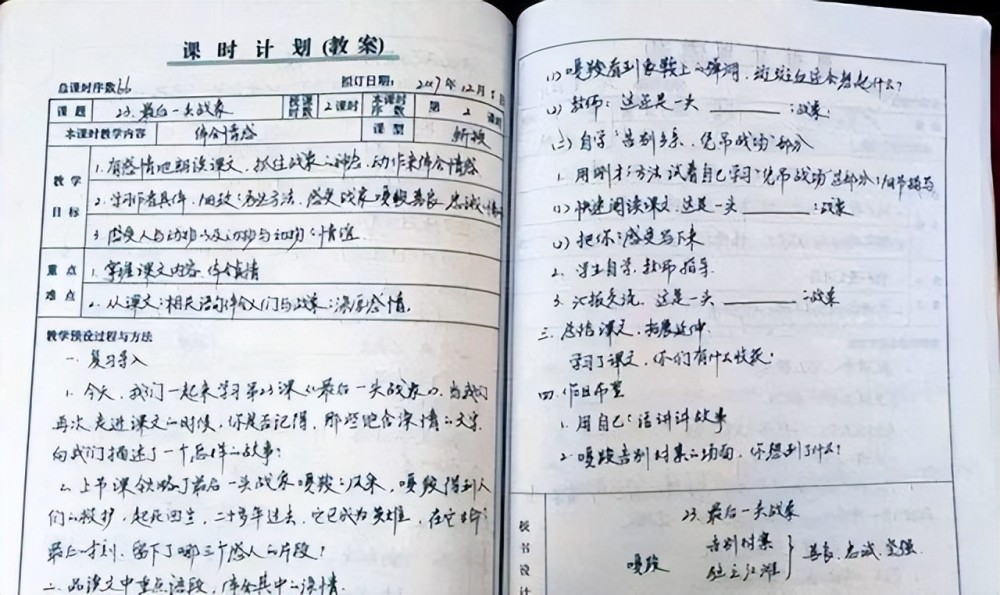 课时计划(教案)
总课时序数66 拟订日期：2017年12月5日
课题 23.最后一头战象 授课时数 2课时 本课时序数 第2课时
本课时教学内容 体会情感 课型 新授
教学目标
1.有感情地朗读课文，抓住战象的神态，动作来体会情感
2.学习作者具体、细致的写法方法，感受战象嘎羧善良、忠诚
3.感受人与动物以及动物与动物的情谊.
重点难点
1.掌握课文内容,体会情
2.从课文的相关语句体会人们与战象的深厚感情。
教学预设过程与方法
一.复习导入
1.今天，我们一起来学习第23课《最后一头战象》，当我们
再次走进课文的时候，你是否记得，那些饱含深情的文字
向我们描述了一个怎样的故事？
2.上节课领略了最后一头战象嘎羧的风采，嘎羧得到人
们的救护，起死回生，二十多年过去，它已成为英雄，在它生命的
最后时刻，留下了哪三个感人的片段？
二.品课文中重点语段，体会其中的深情.
(1)嘎羧看到象鞍上的弹洞，斑斑血迹会想起什么？
(2)教师：这还是一头______的战象.
(三)自学“告别乡亲、凭吊战场”部分
1.用刚才的方法试着自己学习“凭吊战场”这部分的细节描写
(1)快速阅读课文,这是一头______的战象
(2)把你的感受写下来
2.学生自学,教师指导.
3.汇报交流，这是一头______的战象
三.总结课文，拓展延伸.
学习了课文，你们有什么收获?
四.作业布置
1.用自己的话讲讲故事
2.嘎羧告别村寨的场面，你想到了什么?
板书设计
23.最后一头战象
嘎羧 告别村寨 伫立江滩 } 善良、忠诚、坚强